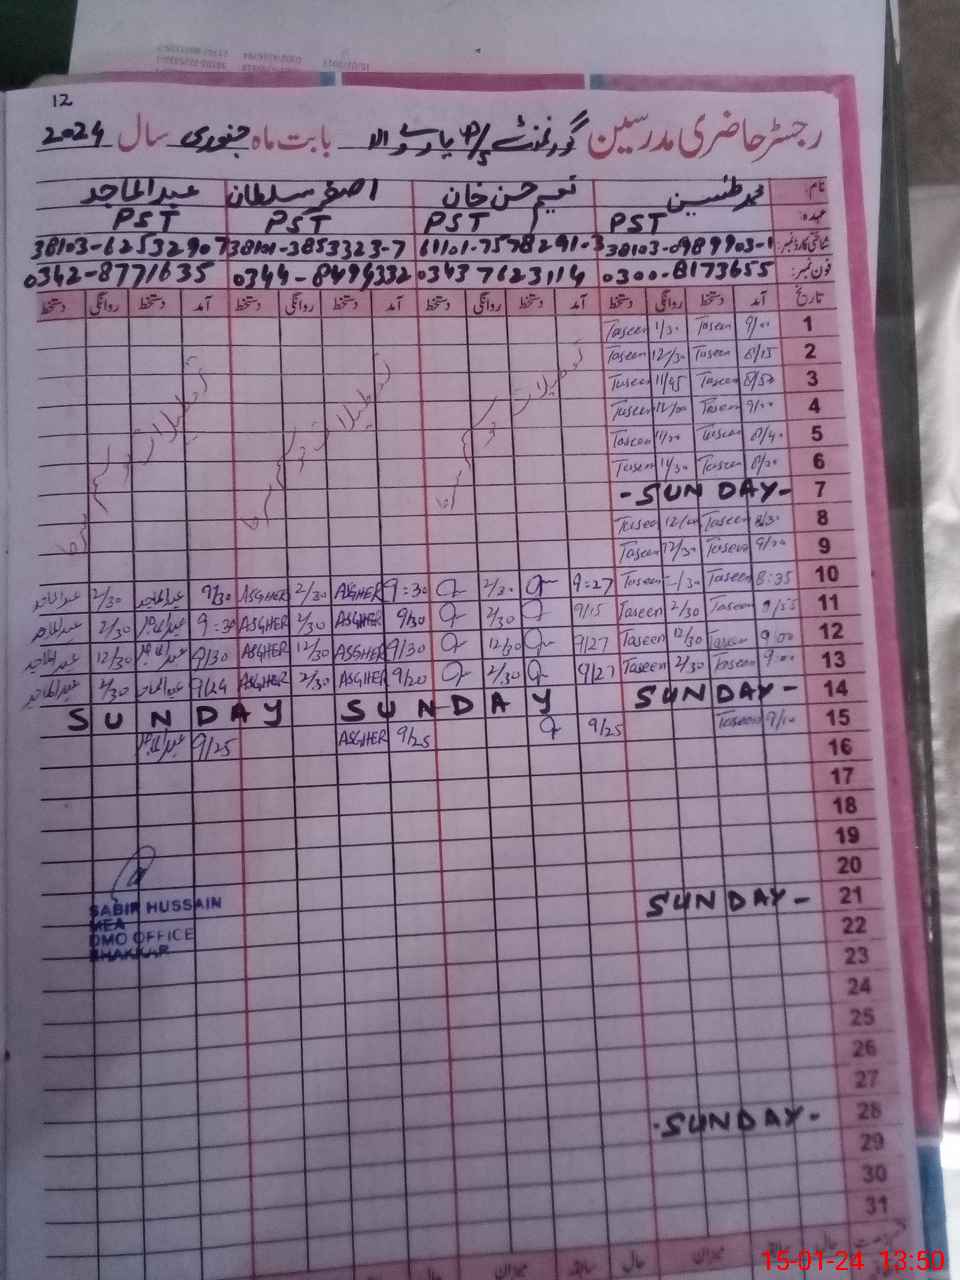 12
رجسٹر حاضری مدرسین گورنمنٹ P/S بابت ماہ جنوری سال 2024
نام: محمد طحسین نعیم حسن خان اصغر سلطان عبدالماجد
عہدہ: PST PST PST PST
شناختی کارڈ نمبر: 38103-0989903-1 61101-7578291-3 38101-3853323-7 38103-62532907
فون نمبر: 0300-8173655 03437623114 0344-8494332 0342-8771635
تاریخ آمد دستخط روانگی دستخط آمد دستخط روانگی دستخط آمد دستخط روانگی دستخط آمد دستخط روانگی دستخط
1 9/00 Taseen 1/30 Taseen
2 8/15 Taseen 12/30 Taseen
3 8/50 Taseen 11/45 Taseen
4 9/00 Taseen 12/00 Taseen
5 8/40 Taseen 11/20 Taseen
6 8/20 Taseen 11/30 Taseen
7 -SUNDAY-
8 8/30 Taseen 12/00 Taseen
9 9/00 Taseen 12/30 Taseen
تعطیلات موسم سرما تعطیلات موسم سرما تعطیلات موسم سرما
10 8:35 Taseen 1/30 Taseen 9:27 2/30 9:30 ASGHER 2/30 ASGHER 9/30 عبدالماجد 2/30 عبدالماجد
11 8/55 Taseen 2/30 Taseen 9/15 2/30 9/30 ASGHER 2/30 ASGHER 9:30 عبدالماجد 2/30 عبدالماجد
12 9/00 Taseen 12/30 Taseen 9/27 12/30 9/30 ASGHER 12/30 ASGHER 9/30 عبدالماجد 12/30 عبدالماجد
13 9:00 Taseen 2/30 Taseen 9/27 2/30 9/20 ASGHER 2/30 ASGHER 9/24 عبدالماجد 2/30 عبدالماجد
14 SUNDAY- SUNDAY SUNDAY
15 9/10 Taseen 9/25 9/25 ASGHER 9/25 عبدالماجد
16
17
18
19
20
21 SUNDAY-
22
23
24
25
26
27
28 -SUNDAY-
29
30
31
SABIR HUSSAIN
MEA
DMO OFFICE
BHAKKAR
میزان سابقہ حال میزان حال
15-01-24 13:50